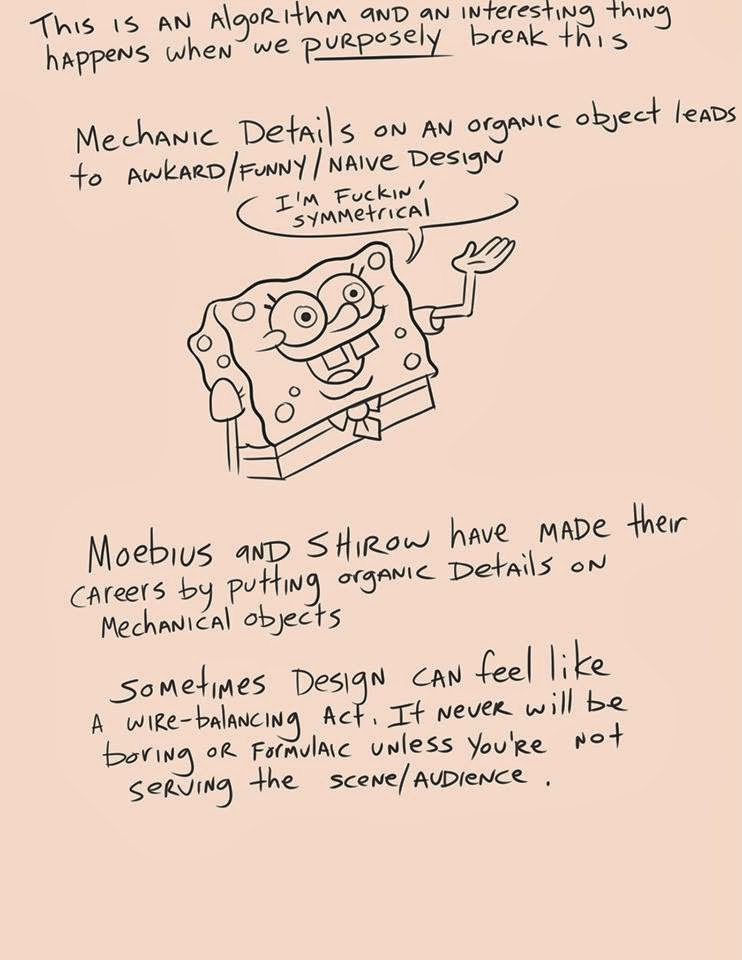 This is an Algorithm and an interesting thing
happens when we purposely break this
Mechanic Details on an organic object leads
to awkard/funny/naive Design
I'm Fuckin'
symmetrical
Moebius and Shirow have made their
careers by putting organic Details on
Mechanical objects
Sometimes Design can feel like
a wire-balancing act. It never will be
boring or formulaic unless you're not
serving the scene/audience.